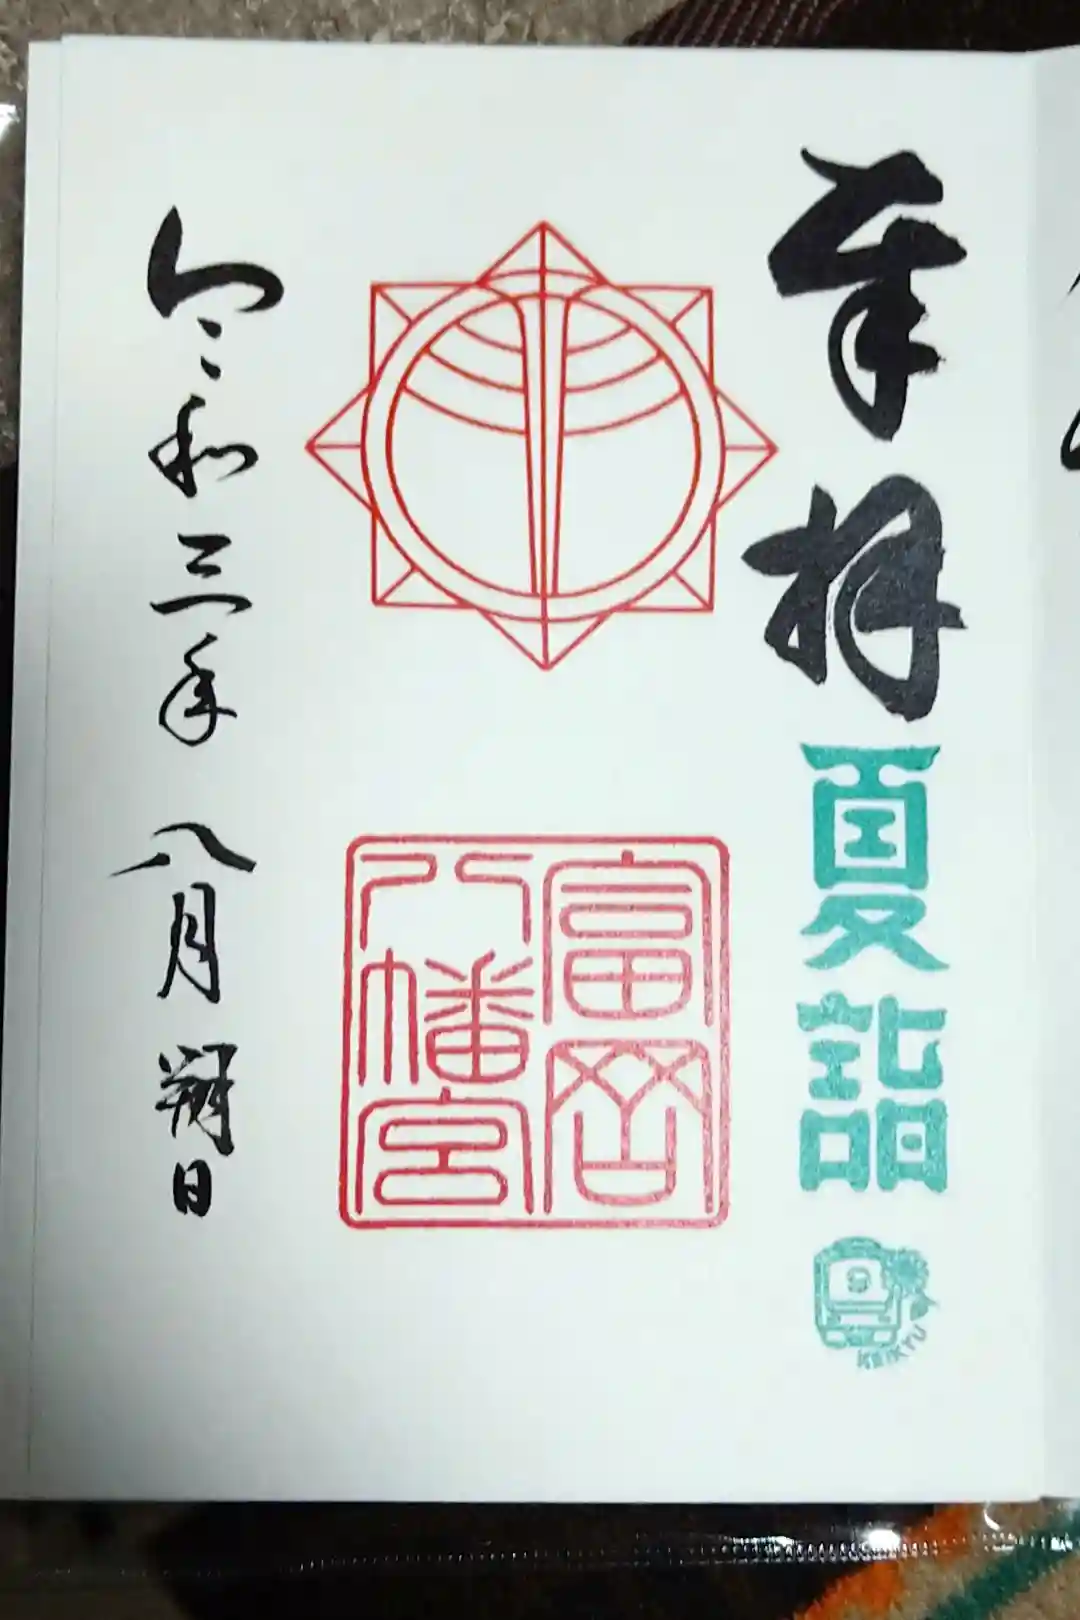 奉拝
夏詣
KEIKYU
富岡
八幡宮
令和三年 八月 朔日